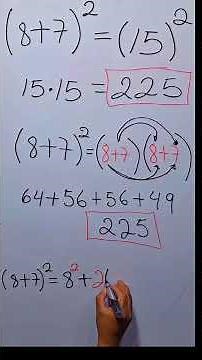 (8+7)² = (15)²
15·15 = 225
(8+7)² = (8+7)(8+7)
64+56+56+49
225
(8+7)² = 8² + 2(